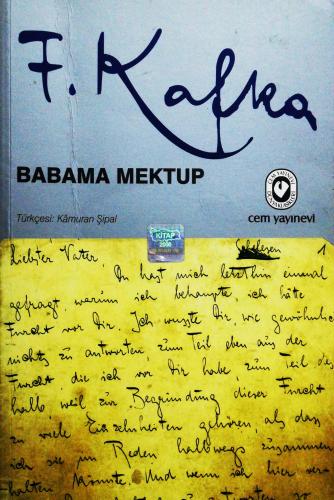 F. Kafka
BABAMA MEKTUP
Türkçesi: Kâmuran Şipal
cem yayınevi
KİTAP
2006
Schelesen
1
Liebster Vater,
Du hast mich letzthin einmal
gefragt, warum ich behaupte, ich hätte
Furcht vor Dir. Ich wusste Dir, wie gewöhnlich,
nichts zu antworten, zum Teil eben aus der
Furcht, die ich vor Dir habe, zum Teil des-
halb weil zur Begründung dieser Furcht
zu viele Einzelnheiten gehören, als dass
ich sie im Reden halbwegs zusammen-
halten könnte. Und wenn ich hier ver-